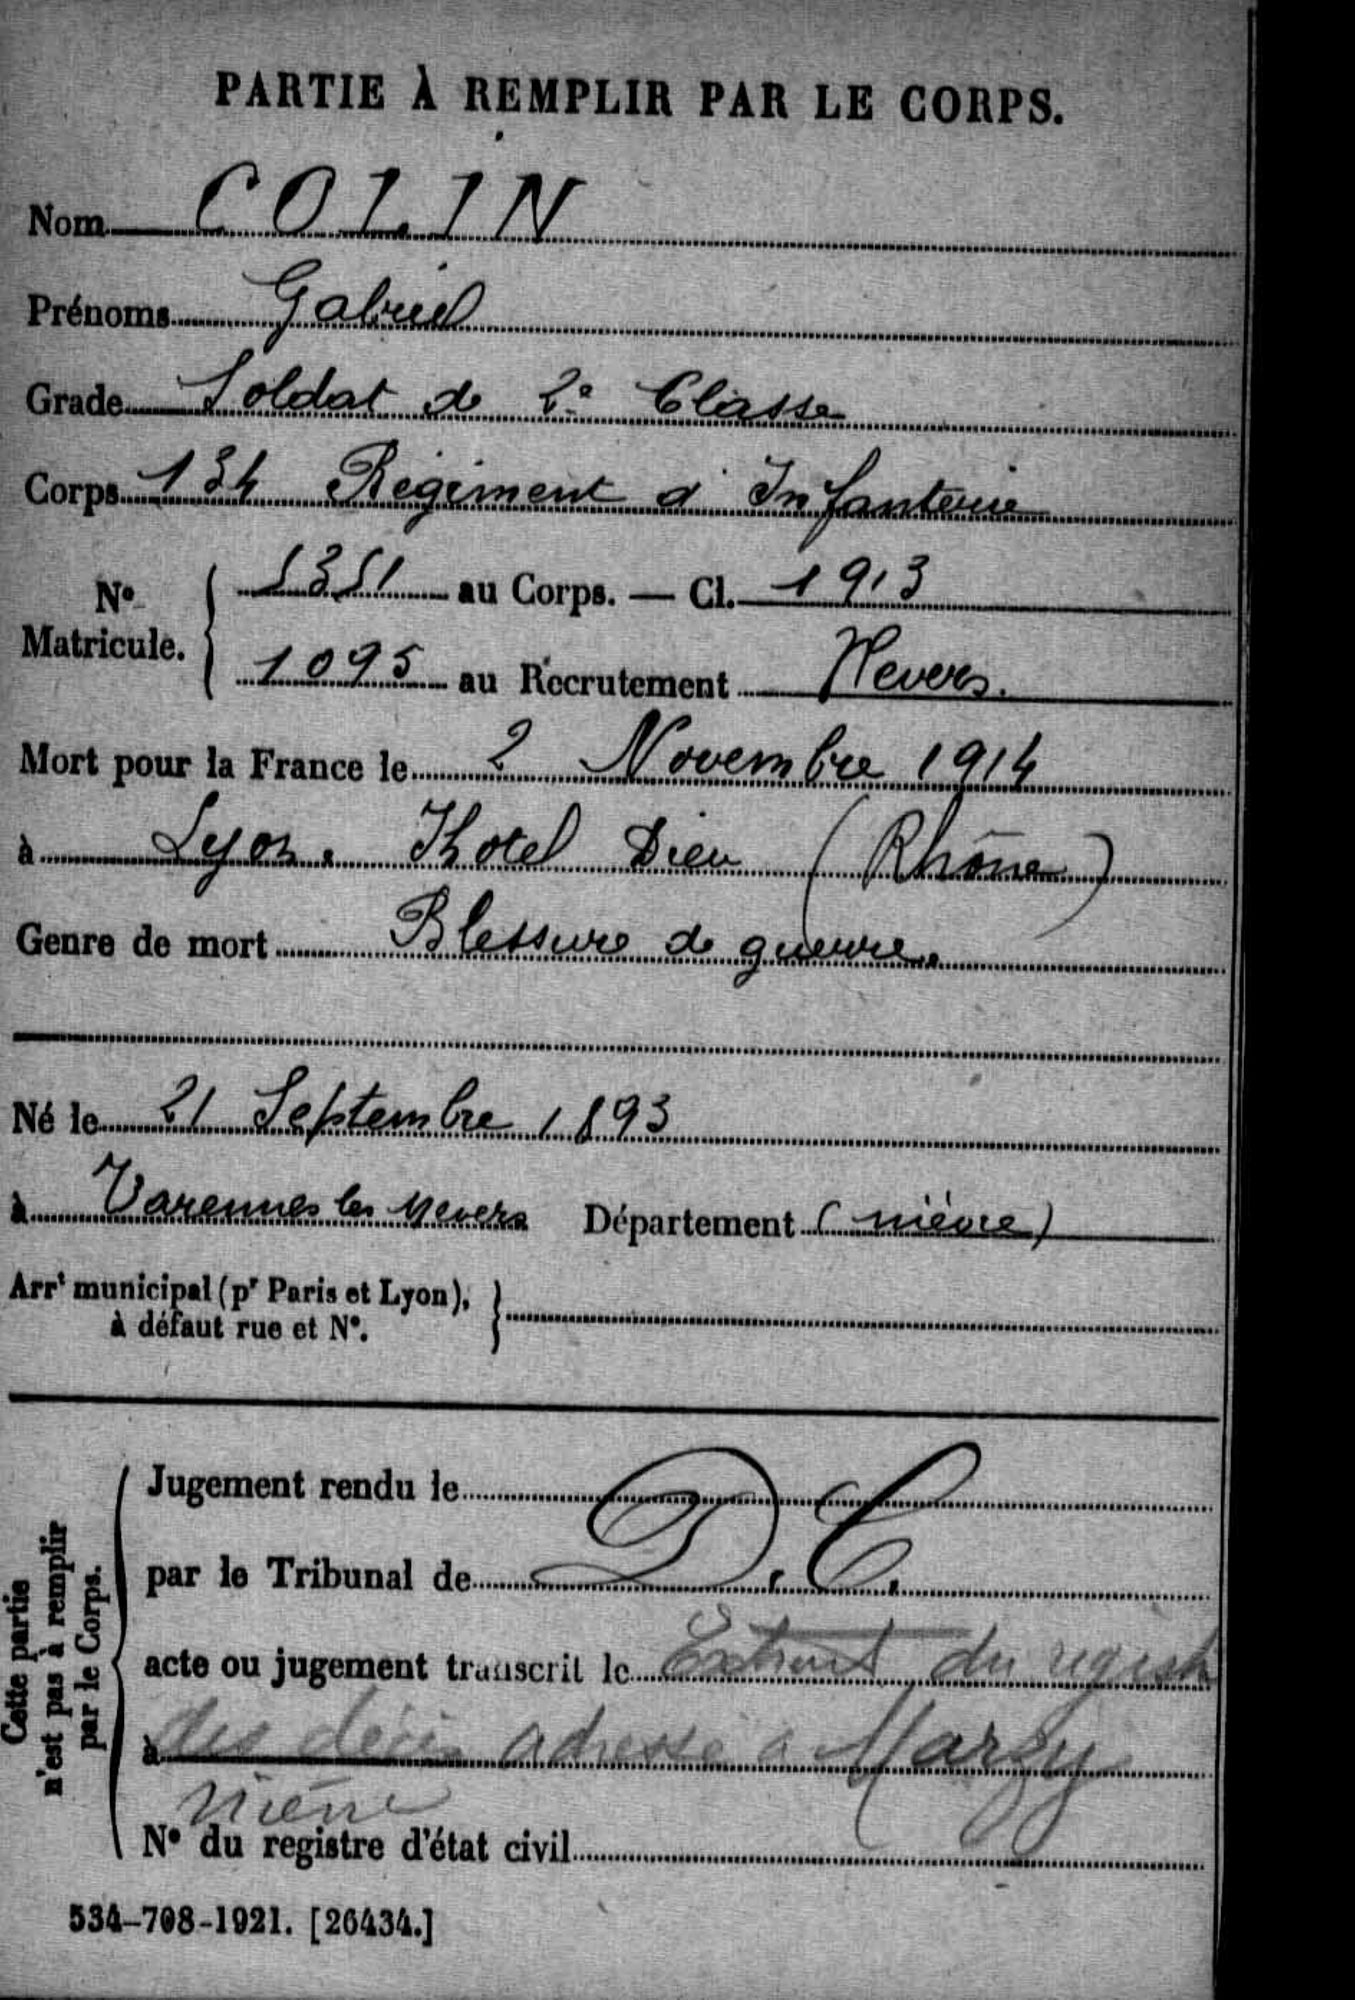 PARTIE À REMPLIR PAR LE CORPS.
Nom COLIN
Prénoms Gabriel
Grade Soldat de 2e Classe
Corps 134 Régiment d'Infanterie
No Matricule. { 5351 au Corps. — Cl. 1913
1095 au Recrutement Nevers.
Mort pour la France le 2 Novembre 1914
à Lyon. Hotel Dieu (Rhône)
Genre de mort Blessure de guerre.
Né le 21 Septembre 1893
à Varennes les Nevers Département (nièvre)
Arrt municipal (pr Paris et Lyon), }
à défaut rue et No.
Cette partie
n'est pas à remplir
par le Corps.
Jugement rendu le
par le Tribunal de D.C.
acte ou jugement transcrit le Extrait du registre
à des décès adressé à Marzy
nièvre
No du registre d'état civil
534-708-1921. [26434.]